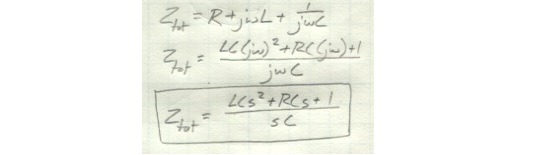 Z_tot = R + jωL + 1/jωC
Z_tot = LC(jω)² + RC(jω) + 1 / jωC
Z_tot = LCs² + RCs + 1 / sC